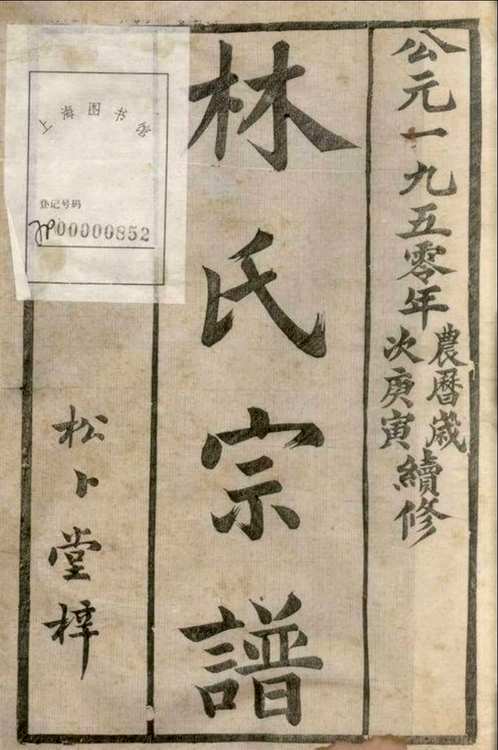 公元一九五零年農曆歲次庚寅續修
林氏宗譜
松卜堂梓
上海图书馆
登记号码
JP00000852